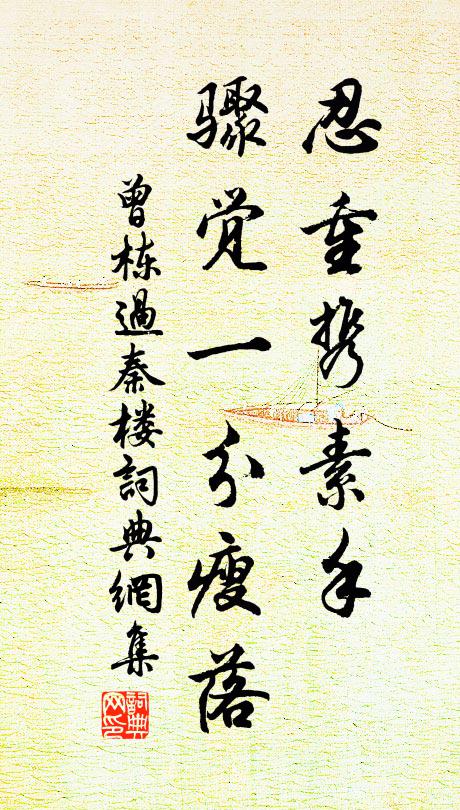 忍重携素手
骤觉一分瘦落
曾栋過秦楼詞典網集
詞典
网印